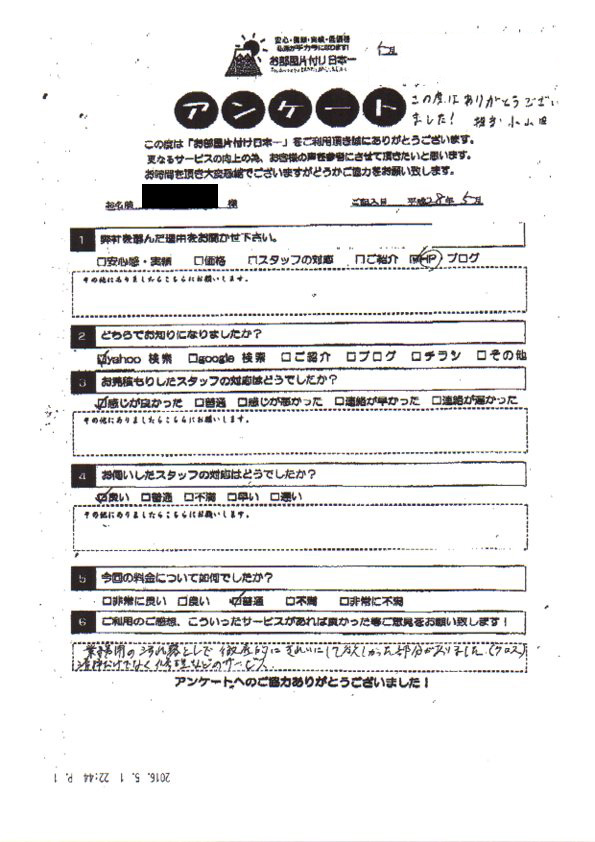 安心・信頼・実績・低価格
お部屋片付け日本一
アンケート
この度はありがとうござい
ました! 担当 小山田
この度は「お部屋片付け日本一」をご利用頂き誠にありがとうございます。
更なるサービスの向上の為、お客様の声を参考にさせて頂きたいと思います。
お時間を頂き大変恐縮でございますがどうかご協力をお願い致します。
お名前 様 ご記入日 平成28年5月
1 弊社を選んだ理由をお聞かせ下さい。
□安心感・実績 □価格 □スタッフの対応 □ご紹介 ☑HP ブログ
その他にありましたらこちらにお願いします。
2 どちらでお知りになりましたか?
☑yahoo 検索 □google 検索 □ご紹介 □ブログ □チラシ □その他
3 お見積もりしたスタッフの対応はどうでしたか?
☑感じが良かった □普通 □感じが悪かった □連絡が早かった □連絡が遅かった
その他にありましたらこちらにお願いします。
4 お伺いしたスタッフの対応はどうでしたか?
☑良い □普通 □不満 □早い □遅い
その他にありましたらこちらにお願いします。
5 今回の料金について如何でしたか?
□非常に良い □良い ☑普通 □不満 □非常に不満
6 ご利用のご感想、こういったサービスがあれば良かった等ご意見をお願い致します!
業務用の汚れ落としで徹底的にきれいにして欲しかった部分がありました(クロス)
清掃だけでなく修理などのサービス
アンケートへのご協力ありがとうございました!
2016. 5. 1 22:44 P. 1